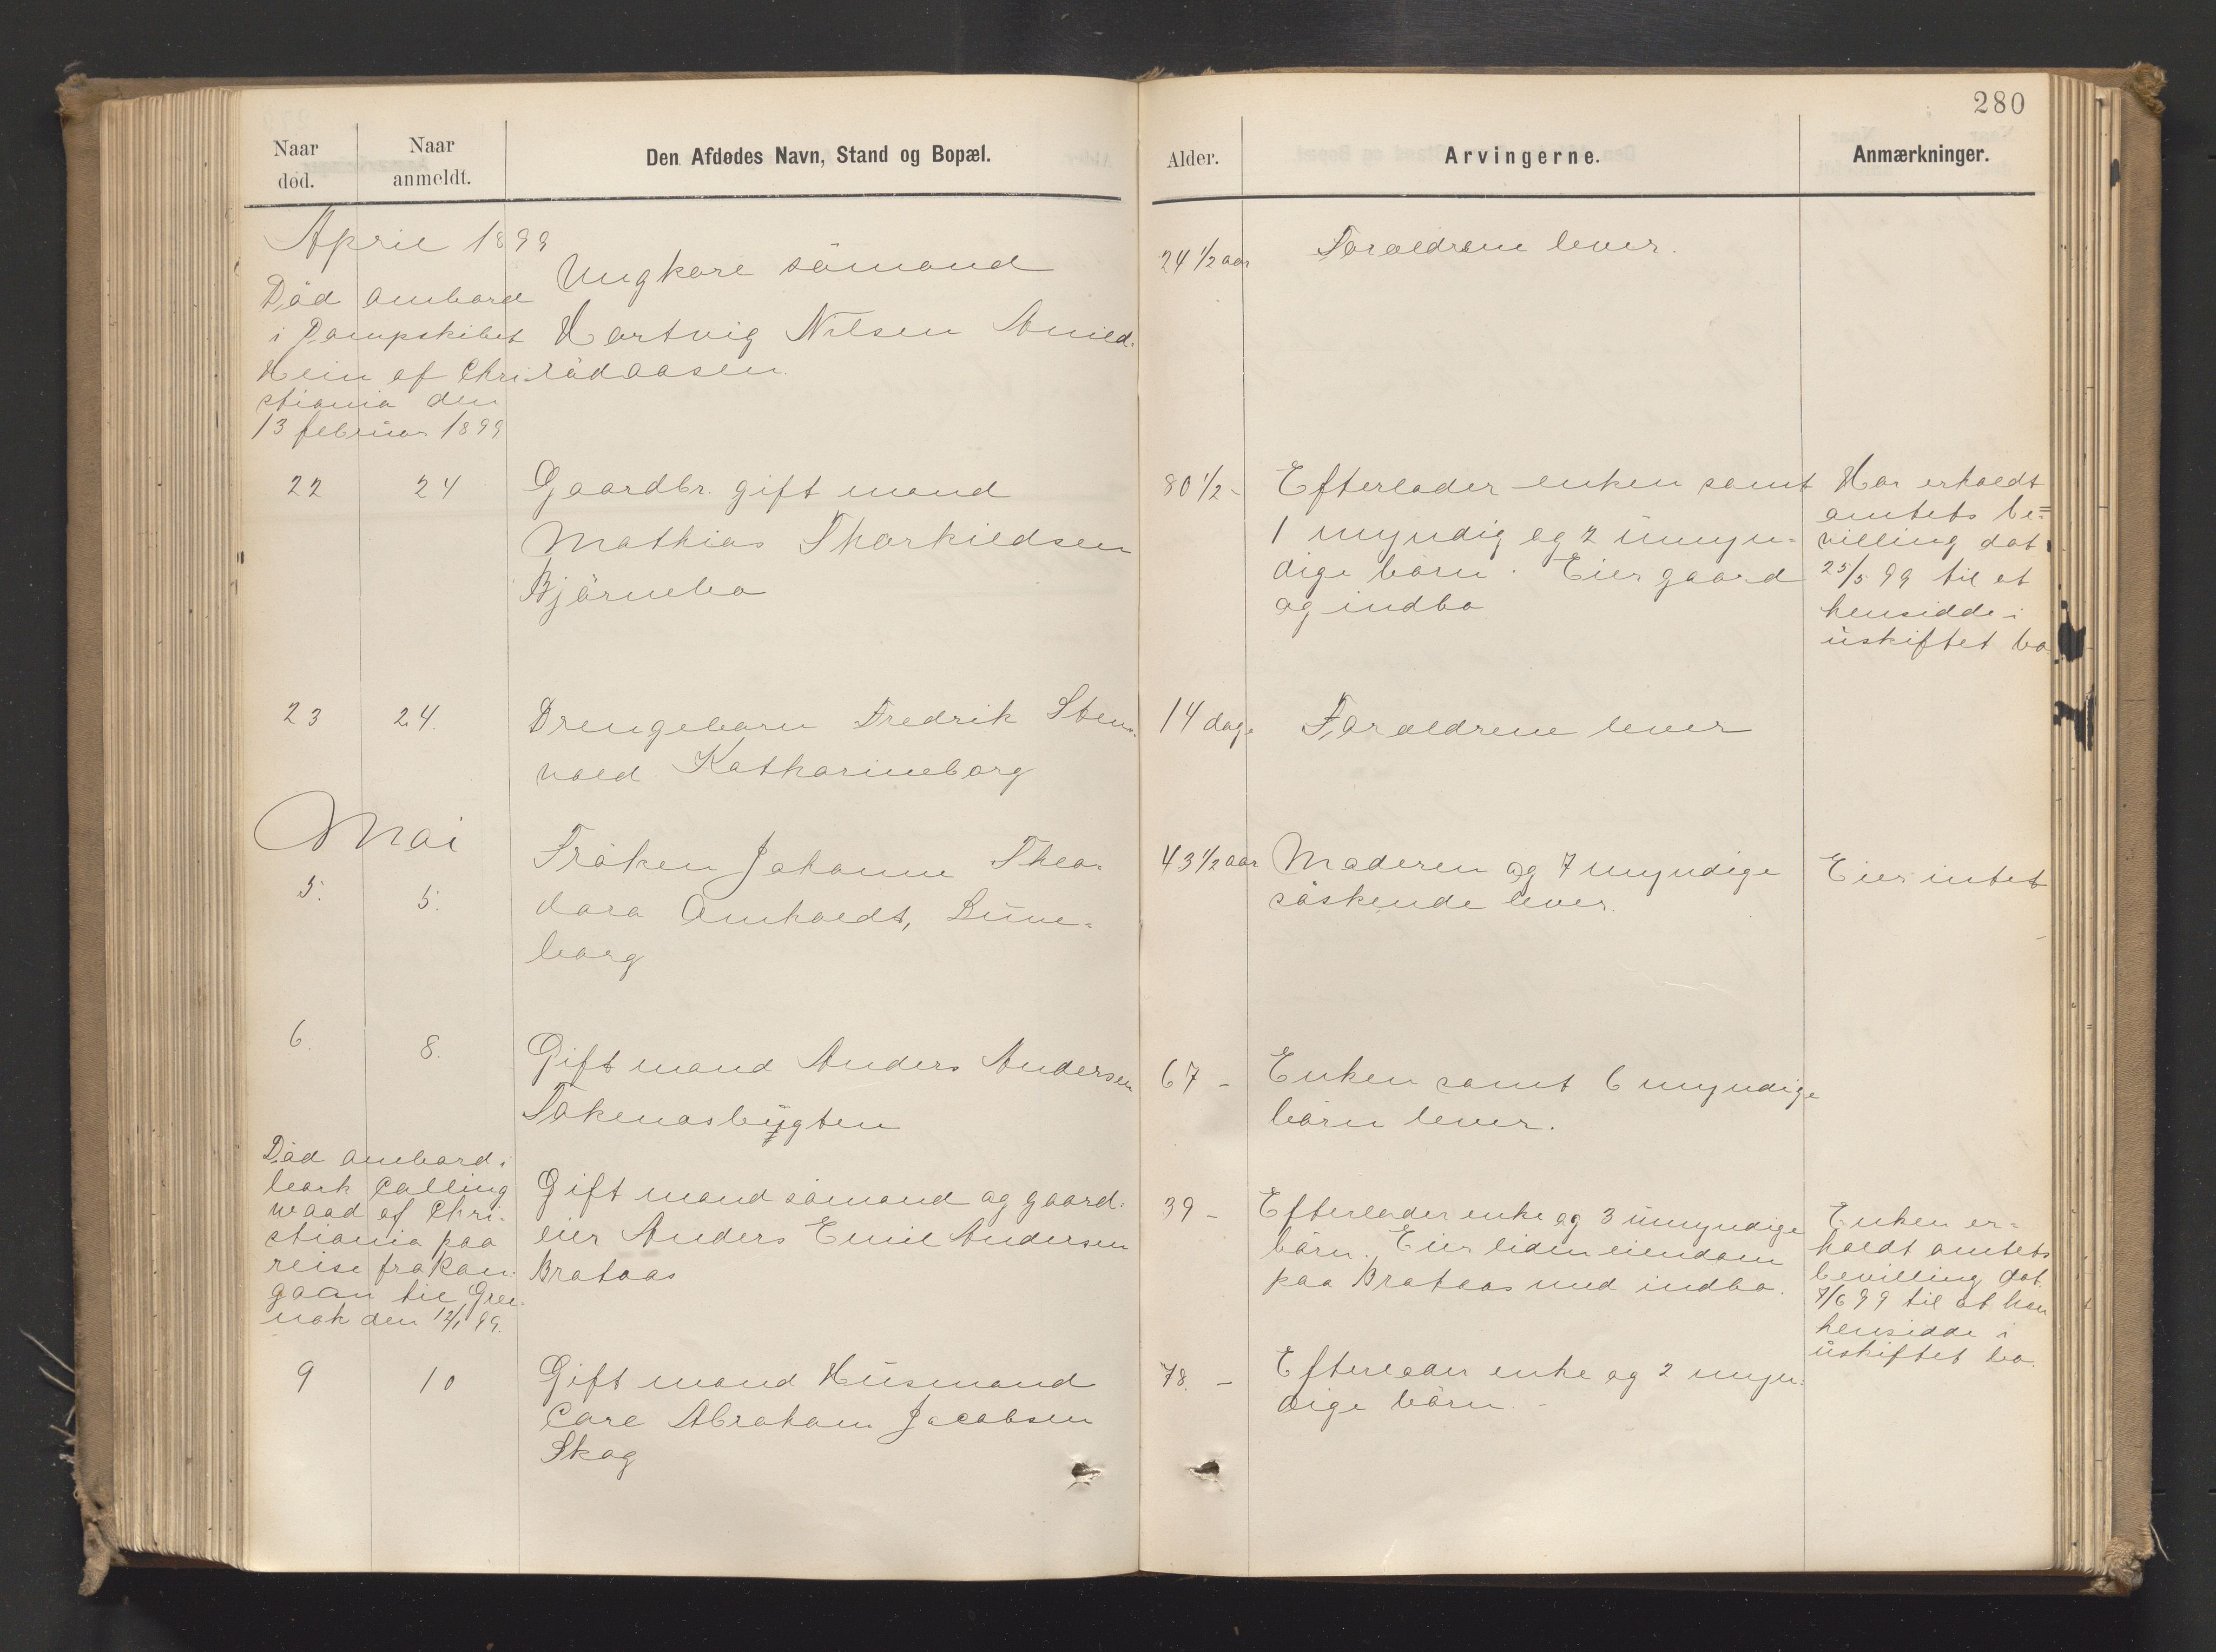 280
Naar
død.
Naar
anmeldt.
Den Afdødes Navn, Stand og Bopæl.
Alder.
Arvingerne.
Anmærkninger.
April 1899
Død ombord
i Dampskibet
Hein af Chri
stiania den
13 februar 1899
Ungkarl sömand
Hartvig Nilsen Arnild-
rödaasen.
24 1/2 aar
Forældrene lever.
22
24
Gaardbr. gift mand
Mathias Thorkildsen
Björnebo
80 1/2 -
Efterlader enken samt
1 myndig og 2 umyn-
dige börn. Eier gaard
og indbo
Har erholdt
amtets be=
villing dat
25/5 99 til at
hensidde i
uskiftet bo.
23
24.
Drengebarn Fredrik Sten-
vold Katharineborg
14 dage
Forældrene lever
Mai
5.
5.
Fröken Johanne Theo-
dora Omholdt, Lune-
borg
43 1/2 aar
Moderen og 7 myndige
söskende lever.
Eier intet
6.
8.
Gift mand Anders Andersen
Tokenasbugten
67 -
Enken samt 6 myndige
börn lever.
Död ombord i
bark Calling
waad af Chri-
stiania paa
reise fra
til Gree-
nok den 12/1 99.
Gift mand sömand og gaard-
eier Anders Emil Andersen
Brataas
39 -
Efterlader enke og 3 umyndige
börn. Eier liden eiendom
paa Brataas med indbo.
Enken er-
holdt amtets
bevilling dat.
7/6 99 til at hun
hensidde i
uskiftet bo.
9
10
Gift mand Husmand
Carl Abraham Jacobsen
Skog
78. -
Efterlader enke og 2 myn-
dige börn. -